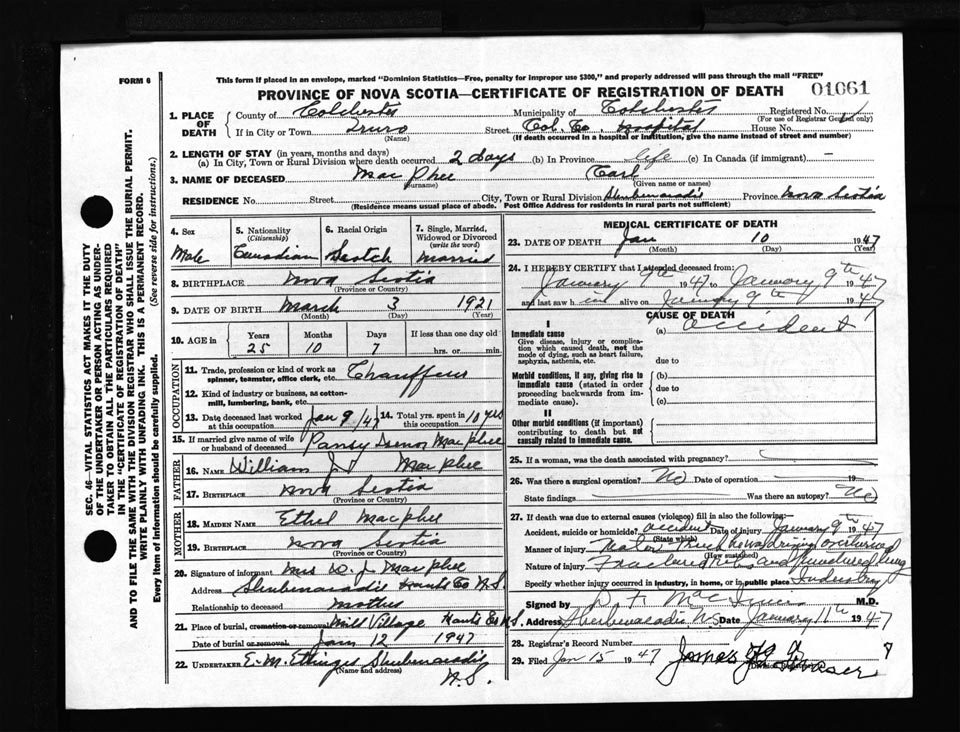 This form if placed in an envelope, marked "Dominion Statistics—Free, penalty for improper use $300," and properly addressed will pass through the mail "FREE"
FORM 6
PROVINCE OF NOVA SCOTIA—CERTIFICATE OF REGISTRATION OF DEATH
01061
1. PLACE OF DEATH
County of Colchester
Municipality of Colchester
Registered No.
(For use of Registrar General only)
If in City or Town Truro
(Name)
Street Col. Co. Hospital
House No.
(If death occurred in a hospital or institution, give the name instead of street and number)
2. LENGTH OF STAY (in years, months and days)
(a) In City, Town or Rural Division where death occurred 2 days (b) In Province life (c) In Canada (if immigrant) —
3. NAME OF DECEASED MacPhee Carl
(Surname) (Given name or names)
RESIDENCE No. Street City, Town or Rural Division Shubenacadie Province Nova Scotia
(Residence means usual place of abode. Post Office Address for residents in rural parts not sufficient)
4. Sex
Male
5. Nationality
(Citizenship)
Canadian
6. Racial Origin
Scotch
7. Single, Married, Widowed or Divorced
(write the word)
Married
8. BIRTHPLACE Nova Scotia
(Province or Country)
9. DATE OF BIRTH March 3 1921
(Month) (Day) (Year)
10. AGE in
Years Months Days If less than one day old
25 10 7 hrs. or min.
OCCUPATION
11. Trade, profession or kind of work as spinner, teamster, office clerk, etc. Chauffeur
12. Kind of industry or business, as cotton-mill, lumbering, bank, etc.
13. Date deceased last worked at this occupation Jan 9/47
14. Total yrs. spent in this occupation 10 yrs
15. If married give name of wife or husband of deceased Pansy MacPhee
FATHER
16. NAME William J. MacPhee
17. BIRTHPLACE Nova Scotia
(Province or Country)
MOTHER
18. MAIDEN NAME Ethel MacPhee
19. BIRTHPLACE Nova Scotia
(Province or Country)
20. Signature of informant Mrs W. J. MacPhee
Address Shubenacadie Hants Co N.S.
Relationship to deceased Mother
21. Place of burial, cremation or removal Mill Village Hants Co N.S.
Date of burial or removal Jan 12 1947
22. UNDERTAKER E. M. Ettinger Shubenacadie
(Name and address)
N.S.
MEDICAL CERTIFICATE OF DEATH
23. DATE OF DEATH Jan 10 1947
(Month) (Day) (Year)
24. I HEREBY CERTIFY that I attended deceased from:
January 9th 1947 to January 9th 1947
and last saw him alive on January 9th 1947
CAUSE OF DEATH
I
Immediate cause
Give disease, injury or complication which caused death, not the mode of dying, such as heart failure, asphyxia, asthenia, etc.
(a) accident
due to
Morbid conditions, if any, giving rise to immediate cause (stated in order proceeding backwards from immediate cause).
(b)
due to
(c)
II
Other morbid conditions (if important) contributing to death but not causally related to immediate cause.
25. If a woman, was the death associated with pregnancy?
26. Was there a surgical operation? No Date of operation 19
State findings Was there an autopsy? No
27. If death was due to external causes (violence) fill in also the following:—
Accident, suicide or homicide? accident Date of injury January 9th 1947
(State which)
Manner of injury Motor Truck he was driving overturned
(How sustained)
Nature of injury Fractured ribs and punctured lung
Specify whether injury occurred in industry, in home, or in public place Industry
Signed by D. F. MacInnis M.D.
Address Shubenacadie NS Date January 11th 1947
28. Registrar's Record Number
29. Filed Jan 15 1947 James Fraser
SEC. 46—VITAL STATISTICS ACT MAKES IT THE DUTY
OF THE UNDERTAKER OR PERSON ACTING AS UNDER-
TAKER TO OBTAIN ALL THE PARTICULARS REQUIRED
IN THE "CERTIFICATE OF REGISTRATION OF DEATH"
AND TO FILE THE SAME WITH THE DIVISION REGISTRAR WHO SHALL ISSUE THE BURIAL PERMIT.
WRITE PLAINLY WITH UNFADING INK. THIS IS A PERMANENT RECORD.
Every item of information should be carefully supplied. (See reverse side for instructions.)